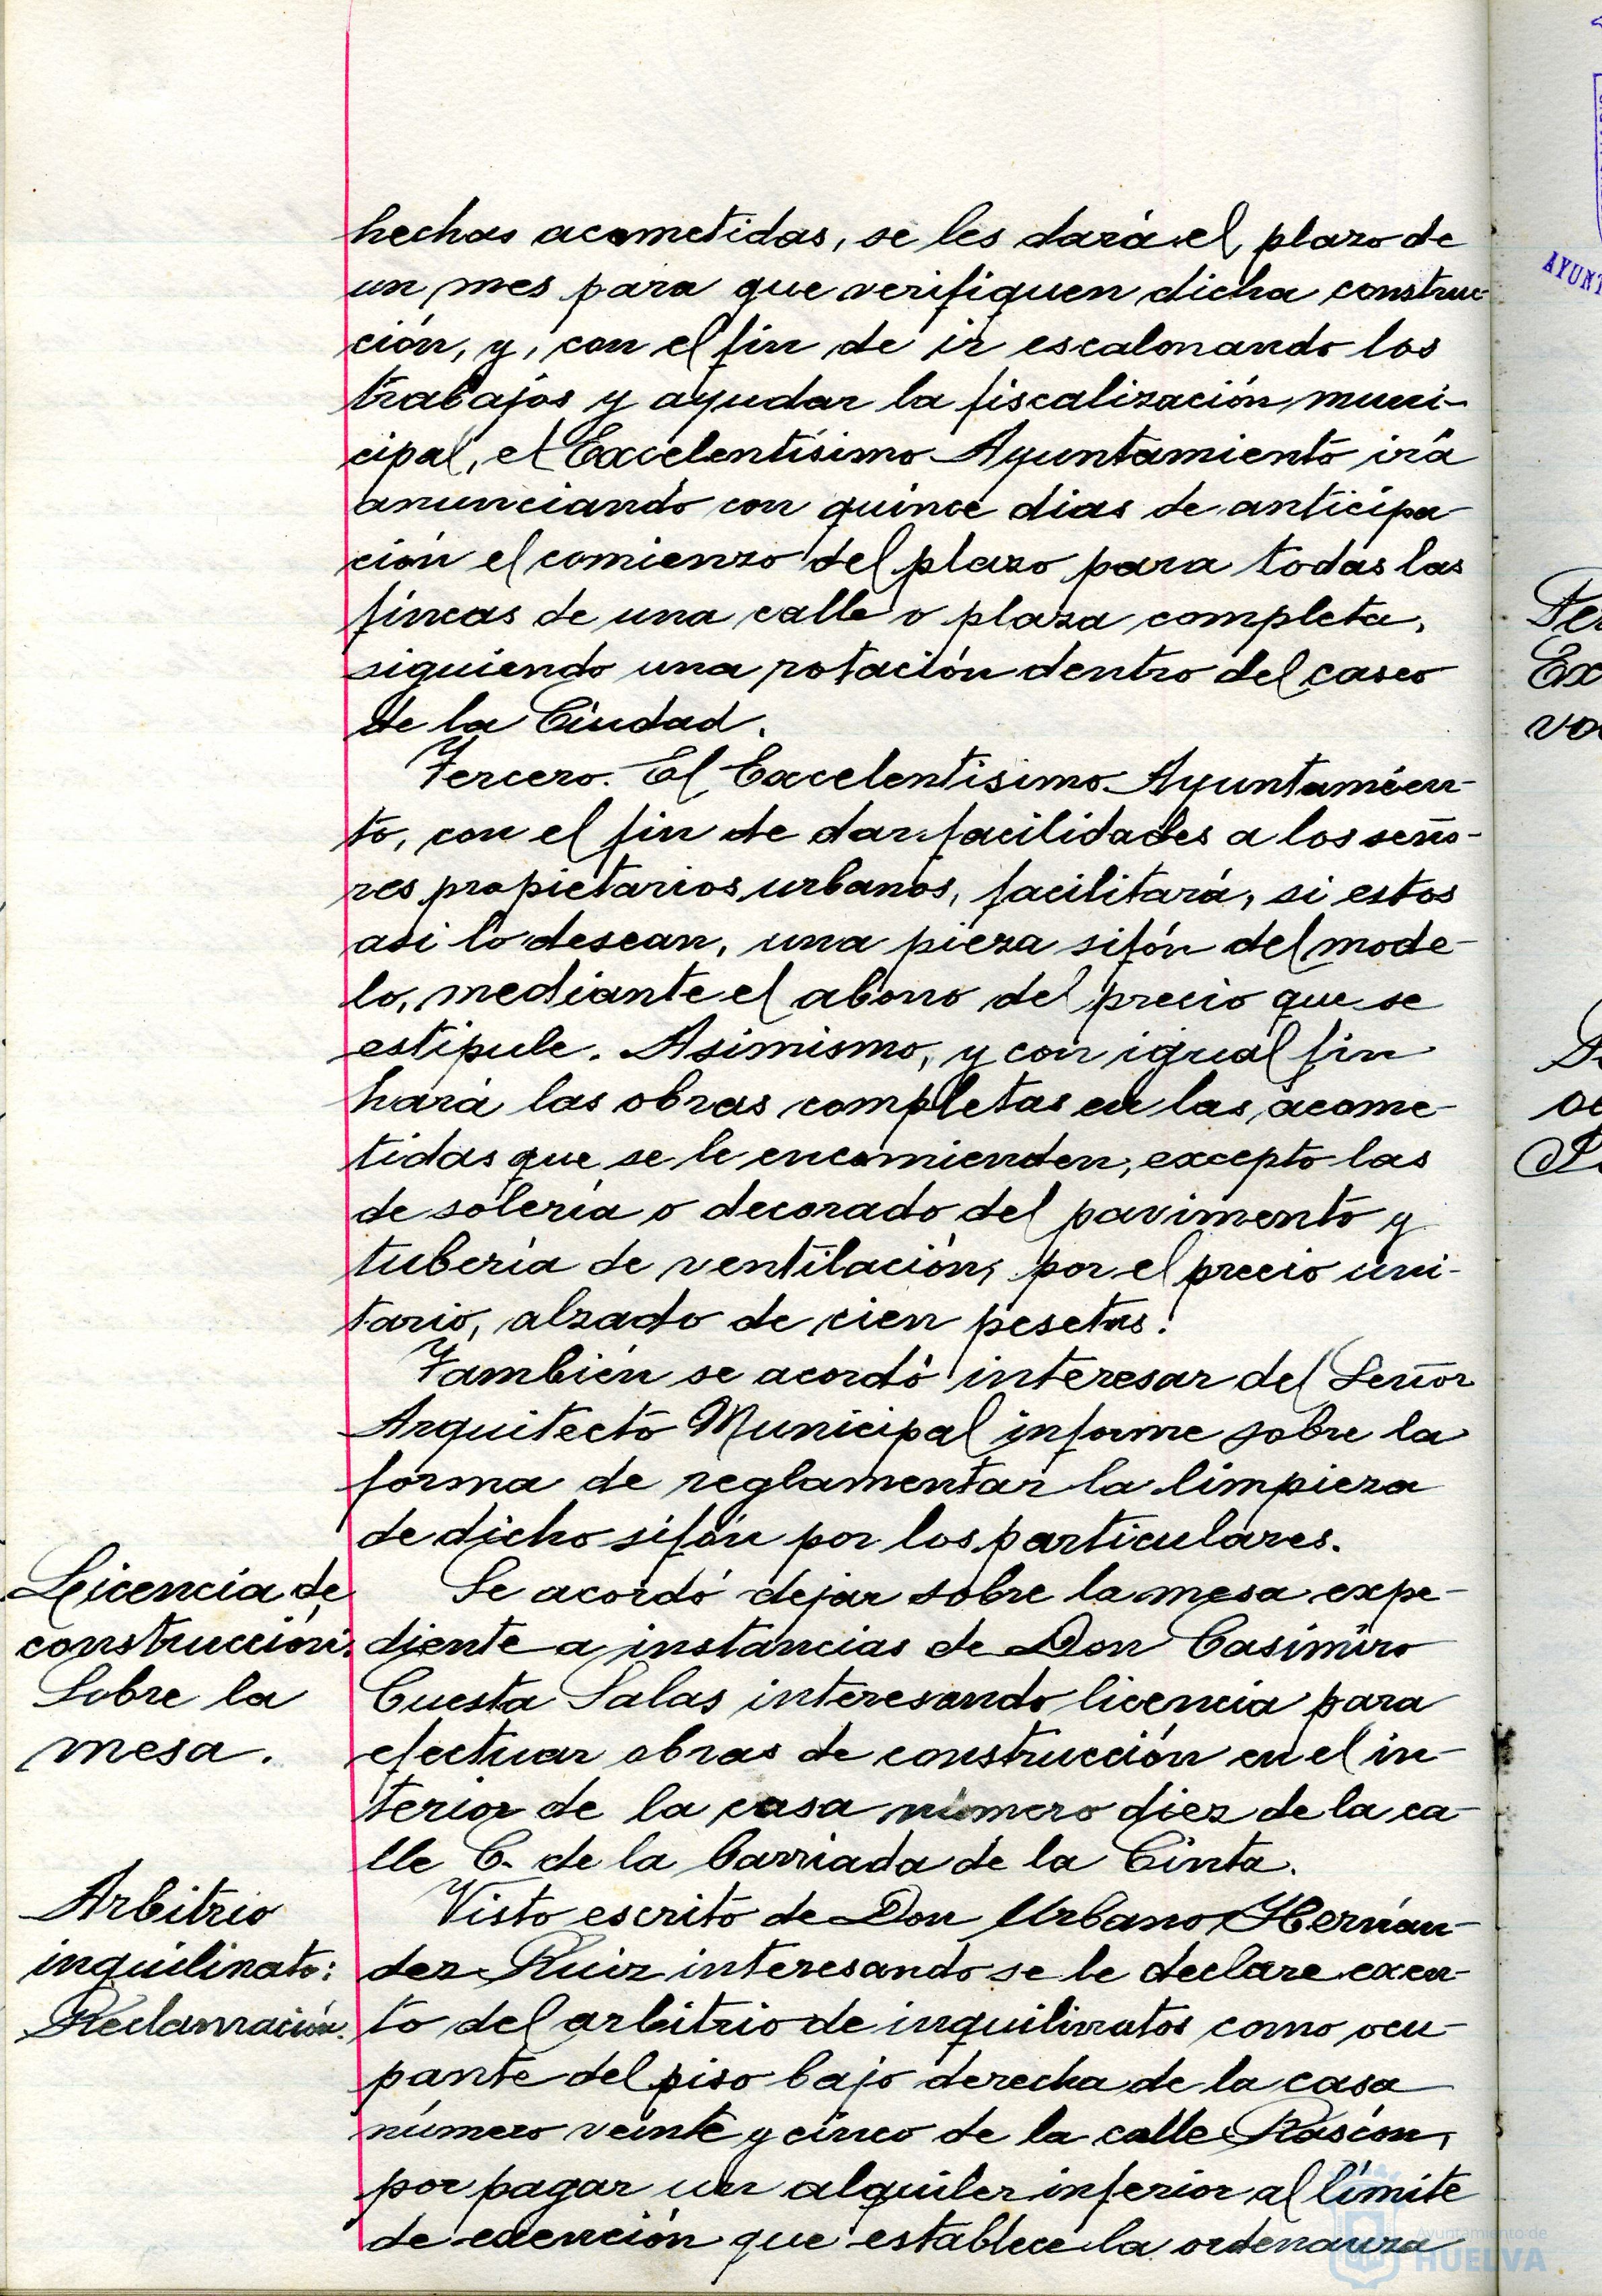 hechas acometidas, se les dará el plazo de
un mes para que verifiquen dicha construc-
ción, y, con el fin de ir escalonando los
trabajos y ayudar la fiscalización muni-
cipal, el Excelentísimo Ayuntamiento irá
anunciando con quince dias de anticipa-
ción el comienzo del plazo para todas las
fincas de una calle o plaza completa,
siguiendo una rotación dentro del casco
de la Ciudad.
Tercero. El Excelentisimo Ayuntamien-
to, con el fin de dar facilidades a los seño-
res propietarios urbanos, facilitará, si estos
asi lo desean, una pieza sifón del mode-
lo, mediante el abono del precio que se
estipule. Asimismo, y con igual fin
hará las obras completas en las acome-
tidas que se le encomienden, excepto las
de solería o decorado del pavimento y
tubería de ventilación, por el precio uni-
tario, alzado de cien pesetas.
También se acordó interesar del Señor
Arquitecto Municipal informe sobre la
forma de reglamentar la limpieza
de dicho sifón por los particulares.
Licencia de
construcción.
Sobre la
mesa.
Se acordó dejar sobre la mesa expe-
diente a instancias de Don Casimiro
Cuesta Salas interesando licencia para
efectuar obras de construcción en el in-
terior de la casa número diez de la ca-
lle C. de la barriada de la Cinta.
Arbitrio
inquilinato:
Reclamación.
Visto escrito de Don Urbano Hernán-
dez Ruiz interesando se le declare exen-
to del arbitrio de inquilinatos como ocu-
pante del piso bajo derecha de la casa
número veinte y cinco de la calle Rascón,
por pagar un alquiler inferior al límite
de exención que establece la ordenanza
Ayuntamiento de
HUELVA
AYUNT
Ex